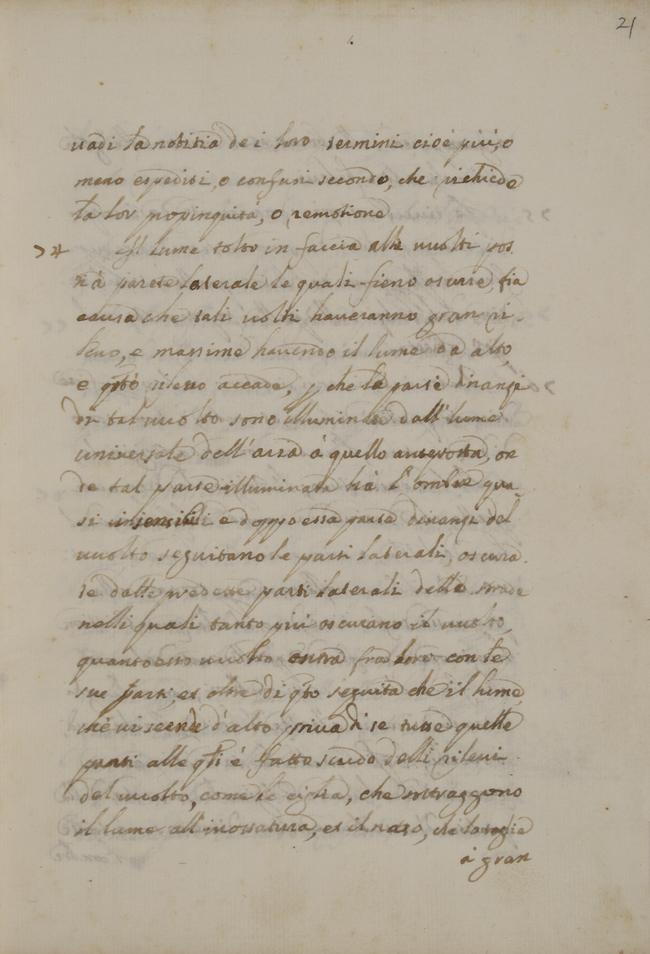 21
uadi la notitia de i loro termini cioè più, o
meno espediti, o confusi secondo, che richiede
la lor propinquità, o remotione
Il lume tolto in faccia alli uolti pos
ti à parete laterale le quali fieno oscure, fia
causa che tali uolti haueranno gran ri
leuo, e massime hauendo il lume da alto,
e qsto rileuo accade, p che le parte dinanzi
di tal uolto sono illuminate dall'lume
uniuersale dell'aria à quello anteposta, on
de tal parte illuminata hà l'ombre qua
si insensibili e doppo essa parte dinanzi del
uuolto seguitano le parti laterali, oscura
te dalle predette parti laterali delle strade
nelli quali tanto più oscurano il uuolto,
quanto esso uuolto entra fra loro con le
sue parti, et oltre di qsto seguita che il lume
che ui scende d'alto priua di se tutte quelle
parti alle qli è fatto scudo delli rileui
del uuolto, come le ciglia, che sottraggono
il lume all'inossatura, et il naso, che lo toglie
à gran